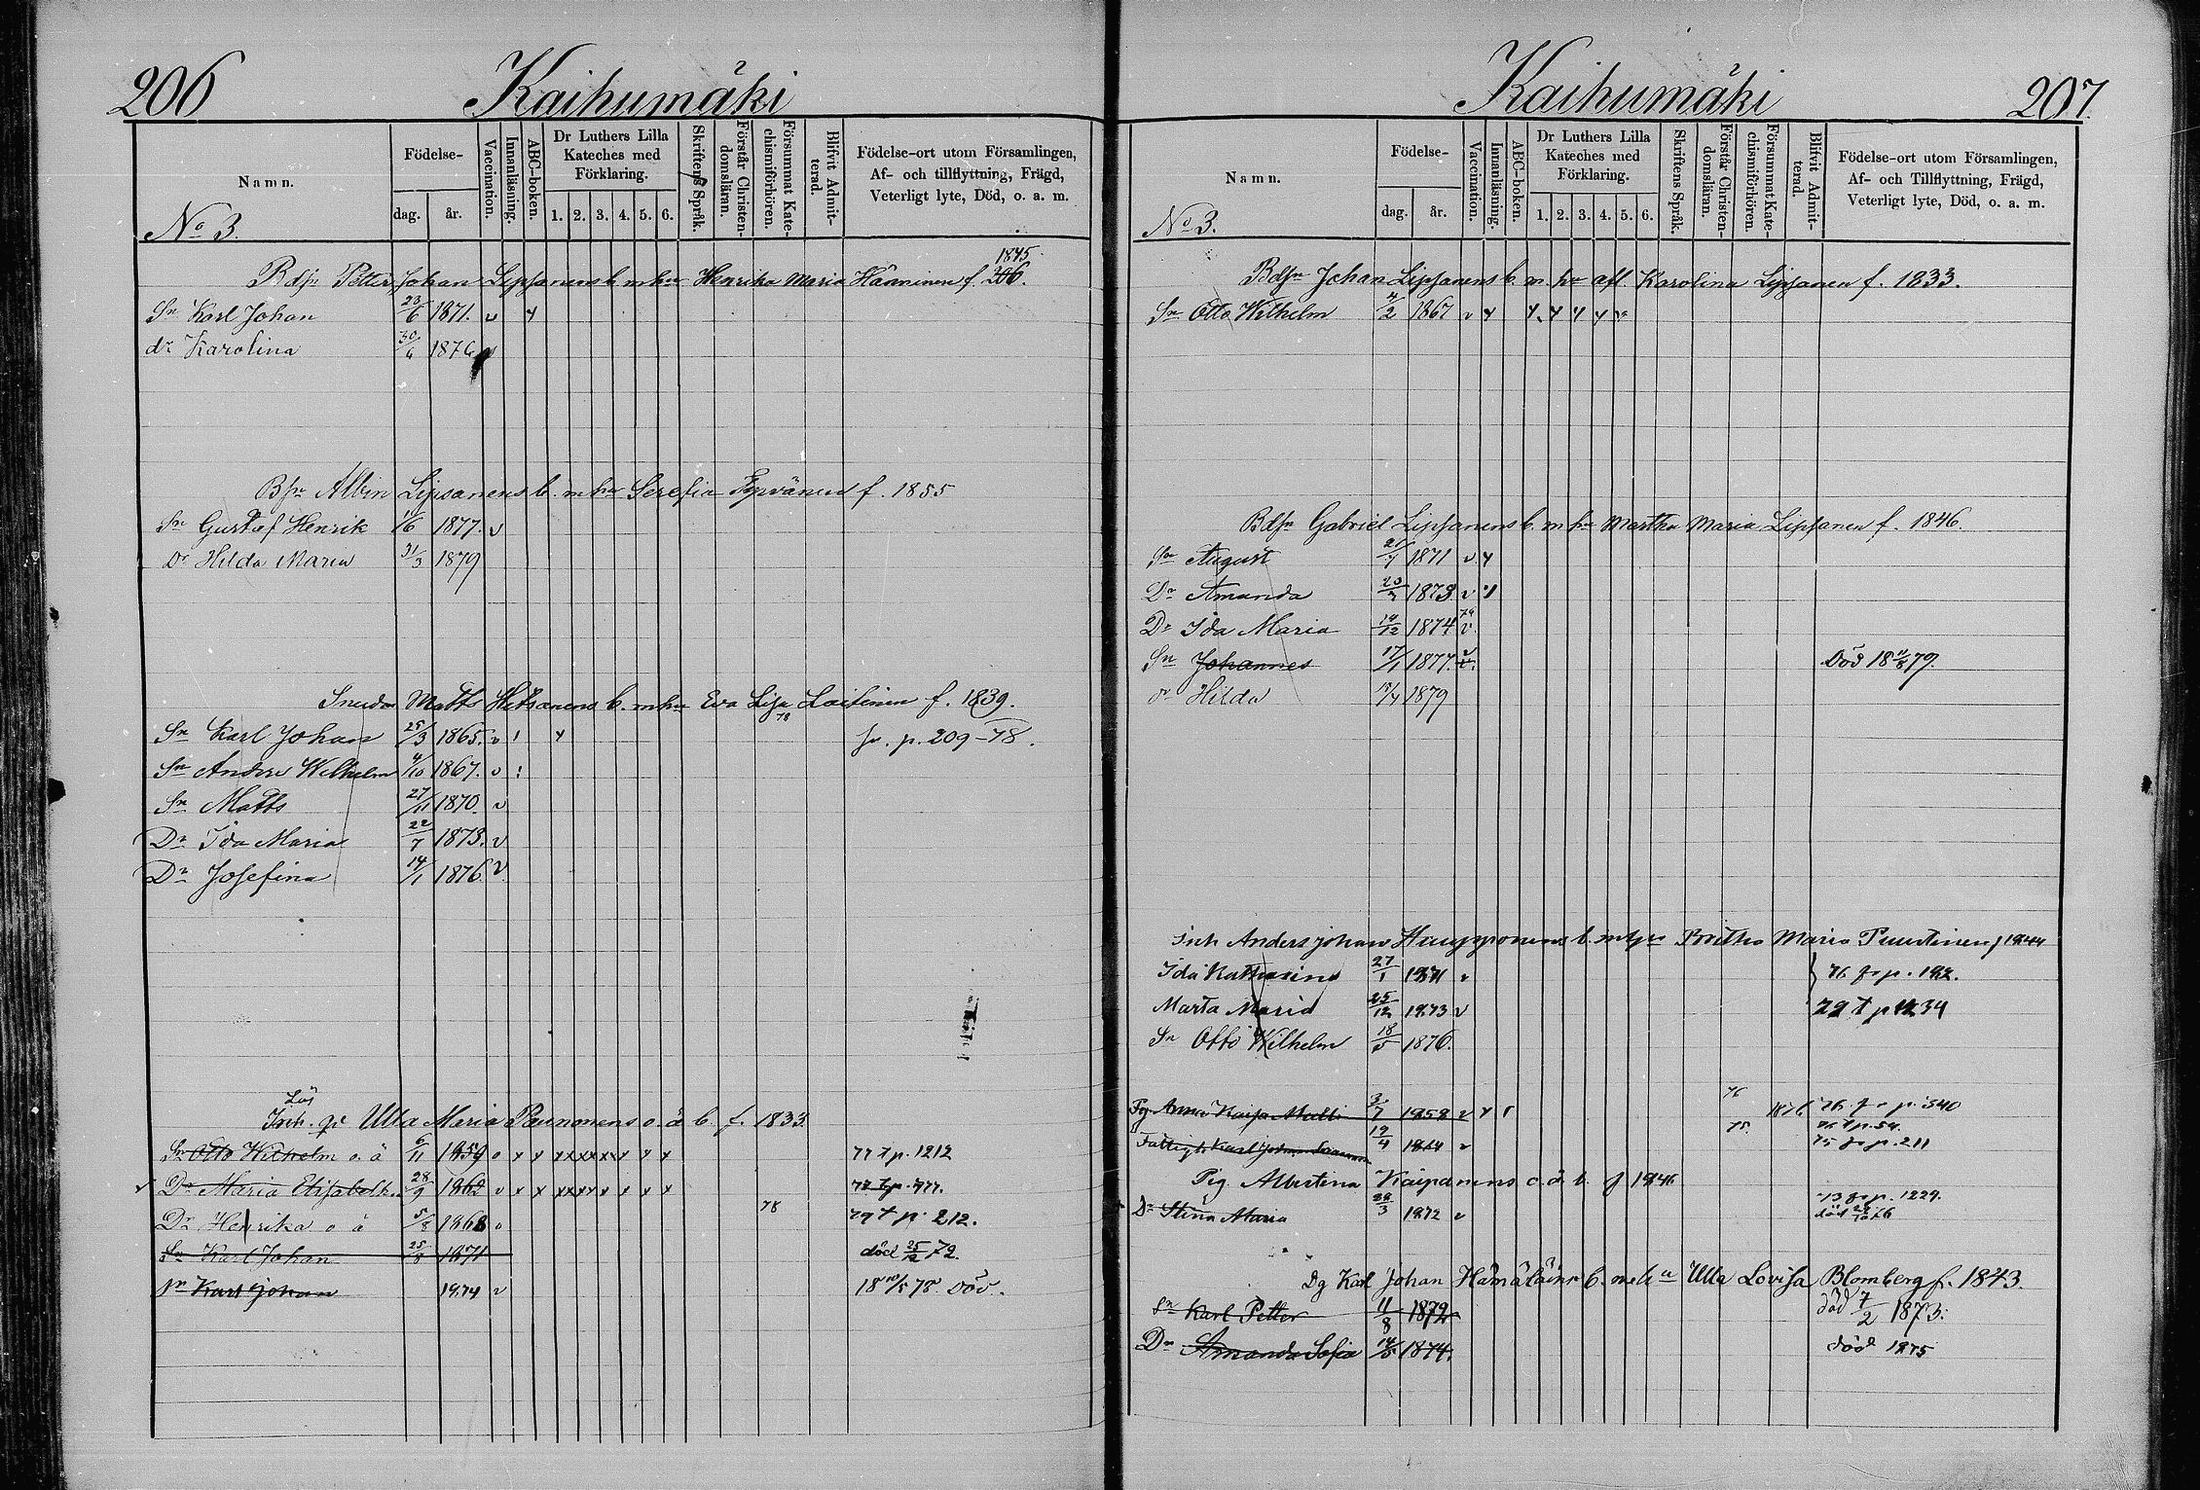 206
Kaihumäki
Namn.
Födelse-
dag.
år.
Vaccination.
Innanläsning.
ABC-boken.
Dr Luthers Lilla Kateches med Förklaring.
1. 2. 3. 4. 5. 6.
Skriftens Språk.
Förstår Christendomsläran.
Försummat Katechismiförhören.
Blifvit Admitterad.
Födelse-ort utom Församlingen, Af- och tillflyttning, Frägd, Veterligt lyte, Död, o. a. m.
No 3.
1845
Petter Johan Lipsanens b. m. hu Henrika Maria Hänninen f. 206.
Sn Karl Johan 23/6 1871. v
dr Karolina 30/6 1876 v
Albin Lipsanens b. m hu Serefia f. 1855
Sn Gustaf Henrik 11/6 1877. v
Dr Hilda Maria 31/3 1879
Matts b. m hu Eva Lisa Laitinen f. 1839.
78
Sn Karl Johan 25/3 1865. v fr. p. 209-78.
Sn Anders Wilhelm 4/10 1867. v
Sn Matts 27/11 1870. v
Dr Ida Maria 22/7 1873. v
Dr Josefina 14/1 1876. v
Lös
Inh. Ulla Maria Paunonens o. ä b. f. 1833
Sn Otto Wilhelm o. ä 6/11 1859 v x x x x x x x x x 77 t p. 1212
Dr Maria Elisabeth 28/9 1862 v x x x x x x x x x 78 t p. 777.
Dr Henrika o ä 5/8 1868 v 78 79 t p. 212.
Sn Karl Johan 25/8 1871 död 25/12 72.
Sn Karl Johan 1874 v död.
Kaihumäki
207.
Namn.
Födelse-
dag.
år.
Vaccination.
Innanläsning.
ABC-boken.
Dr Luthers Lilla Kateches med Förklaring.
1. 2. 3. 4. 5. 6.
Skriftens Språk.
Förstår Christendomsläran.
Försummat Katechismiförhören.
Blifvit Admitterad.
Födelse-ort utom Församlingen, Af- och Tillflyttning, Frägd, Veterligt lyte, Död, o. a. m.
No 3.
Bdsn Johan Lipsanens b. m. hu afl. Karolina Lipsanen f. 1833.
Sn Otto Wilhelm 4/2 1867 v
Bdsn Gabriel Lipsanens b. m hu Martha Maria Lipsanen f. 1846.
Sn August 21/7 1871 v
Dr Amanda 20/7 1873 v
Dr Ida Maria 14/12 1874 79 v
Sn Johannes 17/1 1877. v Död 18 11/8 79.
dr Hilda 1879
Inh Anders Johan b. m hu Maria Puustinen f 1844
Ida Katharina 27/1 1871 v 76 fr p. 192.
Marta Maria 25/12 1873 v 79 t p 1234
Sn Otto Wilhelm 18/5 1876.
Pg Anna Kaisa 3/7 1858 v 76 1876 76 fr p. 340
76 t p. 54.
Karl Johan 19/4 1864 v 75. 75 fr p. 211
Pig. Albertina Kaipanens o. ä. b. f 1846
Dr Stina Maria 28/3 1872 v 73 fr p. 1229.
död
Dg Karl Johan Hämäläins b. m h a Ulla Lovisa Blomberg f. 1843.
Sn Karl Petter 11/8 1872 död 7/2 1873.
Dr Amanda Sofia 14/5 1874. död 1875